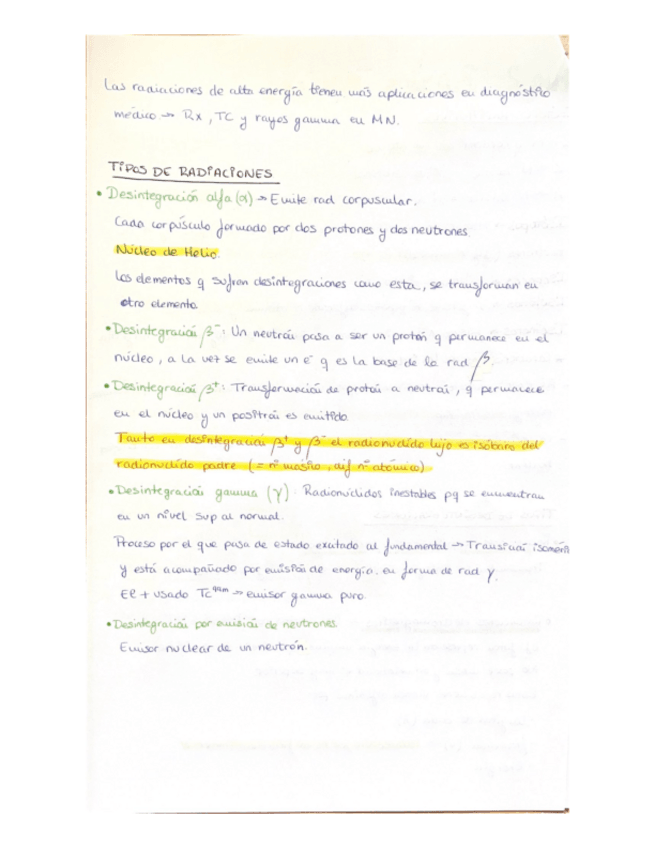 Las radiaciones de alta energía tienen más aplicaciones en diagnóstico
médico → Rx, TC y rayos gamma en MN.
TIPOS DE RADIACIONES
• Desintegración alfa (α) → Emite rad corpuscular.
Cada corpúsculo formado por dos protones y dos neutrones.
Núcleo de Helio.
Los elementos q sufran desintegraciones como esta, se transforman en
otro elemento.
• Desintegración β⁻: Un neutrón pasa a ser un protón q permanece en el
núcleo, a la vez se emite un e⁻ q es la base de la rad β.
• Desintegración β⁺: Transformación de protón a neutrón, q permanece
en el núcleo y un positrón es emitido.
Tanto en desintegración β⁺ y β⁻ el radionúclido hijo es isóbaro del
radionúclido padre (= nº másico, dif nº atómico)
• Desintegración gamma (γ). Radionúclidos inestables pq se encuentran
en un nivel sup al normal.
Proceso por el que pasa de estado excitado al fundamental → Transición isoméri
y está acompañado por emisión de energía, en forma de rad γ.
El + usado Tc⁹⁹ᵐ → emisor gamma puro.
• Desintegración por emisión de neutrones.
Emisor nuclear de un neutrón.